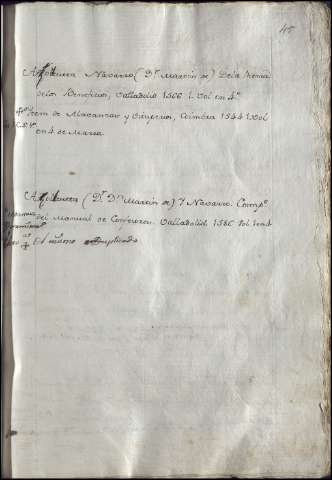 45
Azpilcueta Navarro (Dr. Martin de) De la Renta
de los Beneficios, Valladolid 1566 1. Vol en 4º
Item de y Coimbra 1544 1. Vol
en 4 de Marca
Azpilcueta (Dr. Dn. Martin de) y Navarro. Compº
del Manual de Confesores. Valladolid. 1586 Vol. 1 en 4
El mismo Duplicado